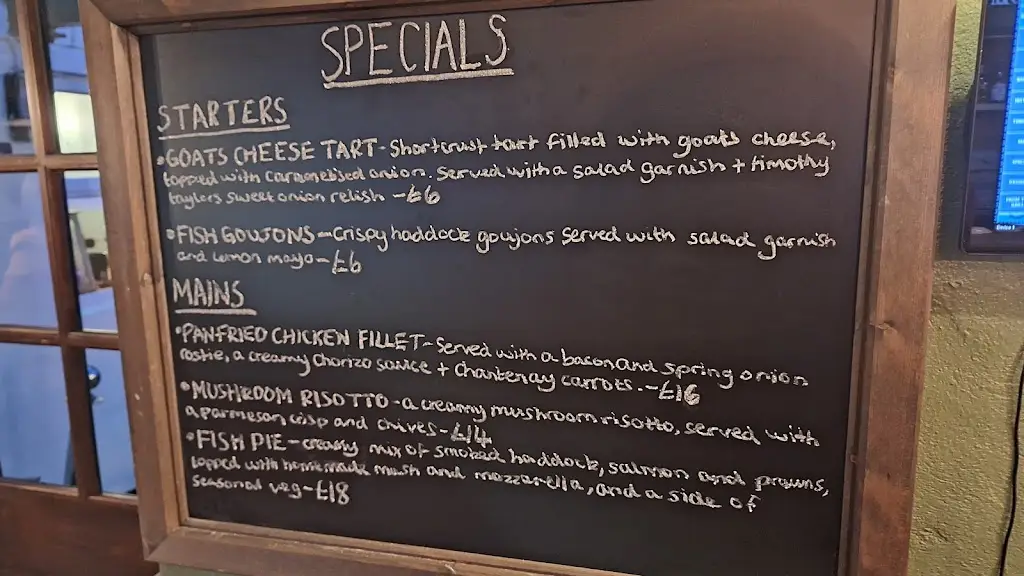 SPECIALS
STARTERS
•GOATS CHEESE TART - Shortcrust tart filled with goats cheese,
topped with caramelised onion. Served with a salad garnish + timothy
taylors sweet onion relish - £6
•FISH GOUJONS - crispy haddock goujons served with salad garnish
and lemon mayo - £6
MAINS
•PANFRIED CHICKEN FILLET - Served with a bacon and spring onion
rostie, a creamy chorizo sauce + Chantenay carrots. - £16
•MUSHROOM RISOTTO - a creamy mushroom risotto, served with
a parmesan crisp and chives - £14
•FISH PIE - creamy mix of smoked haddock, salmon and prawns,
topped with homemade mash and mozzarella, and a side of
seasonal veg - £18